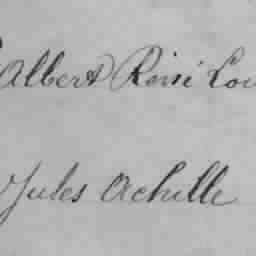 Albert René Lou
Jules Achille